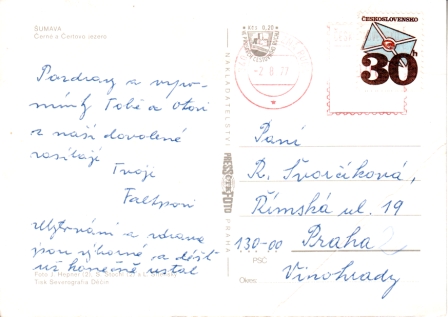 ŠUMAVA
Černé a Čertovo jezero
Pozdravy a vzpo-
mínky Tobě a Otovi
z naší dovolené
zasílají Tvoji
Faltysovi
Ubytování a strava
jsou výborné a déšť
už konečně ustal
Tisk Severografia Děčín
NAKLADATELSTVÍ
PRESSFOTO
PRAHA
Kčs 0,20
ČESKOSLOVENSKO
30h
Paní
R. Švorčíková,
Římská ul. 19
130-00 Praha 2
PSČ
Okres:
Vinohrady